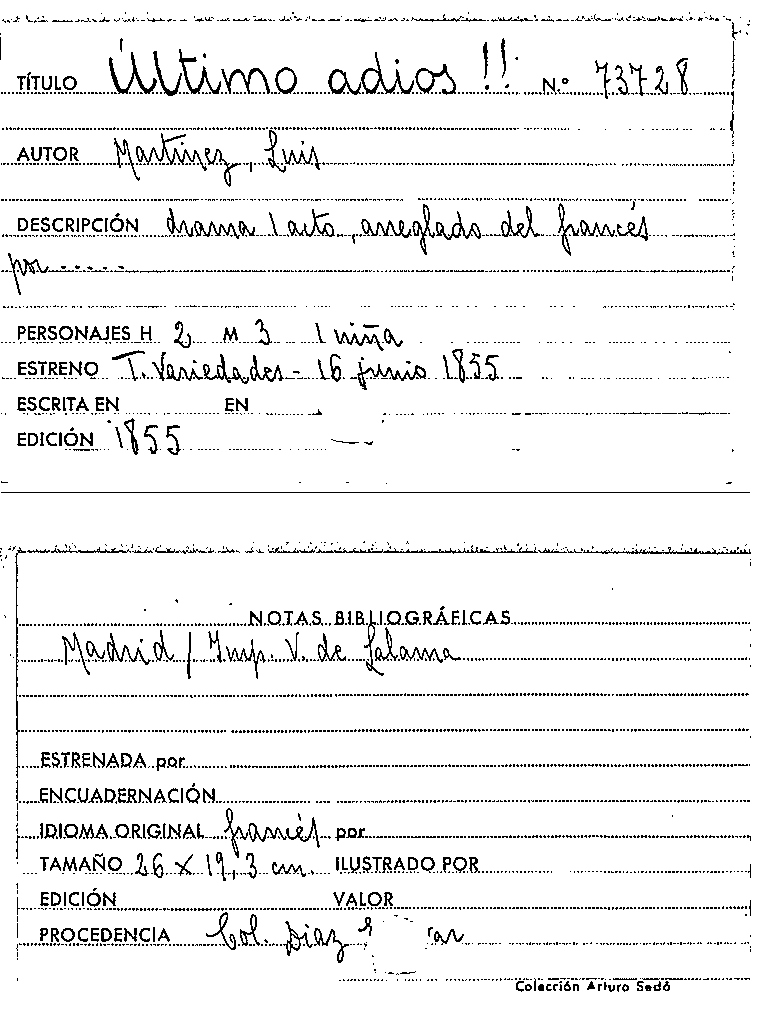 TÍTULO Último adios !! N.º 73728
AUTOR Martinez, Luis
DESCRIPCIÓN drama 1 acto, arreglado del francés
por .....
PERSONAJES H 2 M 3 1 niña
ESTRENO T. Variedades - 16 junio 1855
ESCRITA EN EN
EDICIÓN 1855
NOTAS BIBLIOGRÁFICAS
Madrid / Imp. V. de Lalama
ESTRENADA por
ENCUADERNACIÓN
IDIOMA ORIGINAL francés por
TAMAÑO 26 x 19,3 cm. ILUSTRADO POR
EDICIÓN VALOR
PROCEDENCIA Col. Diaz
Colección Arturo Sedó